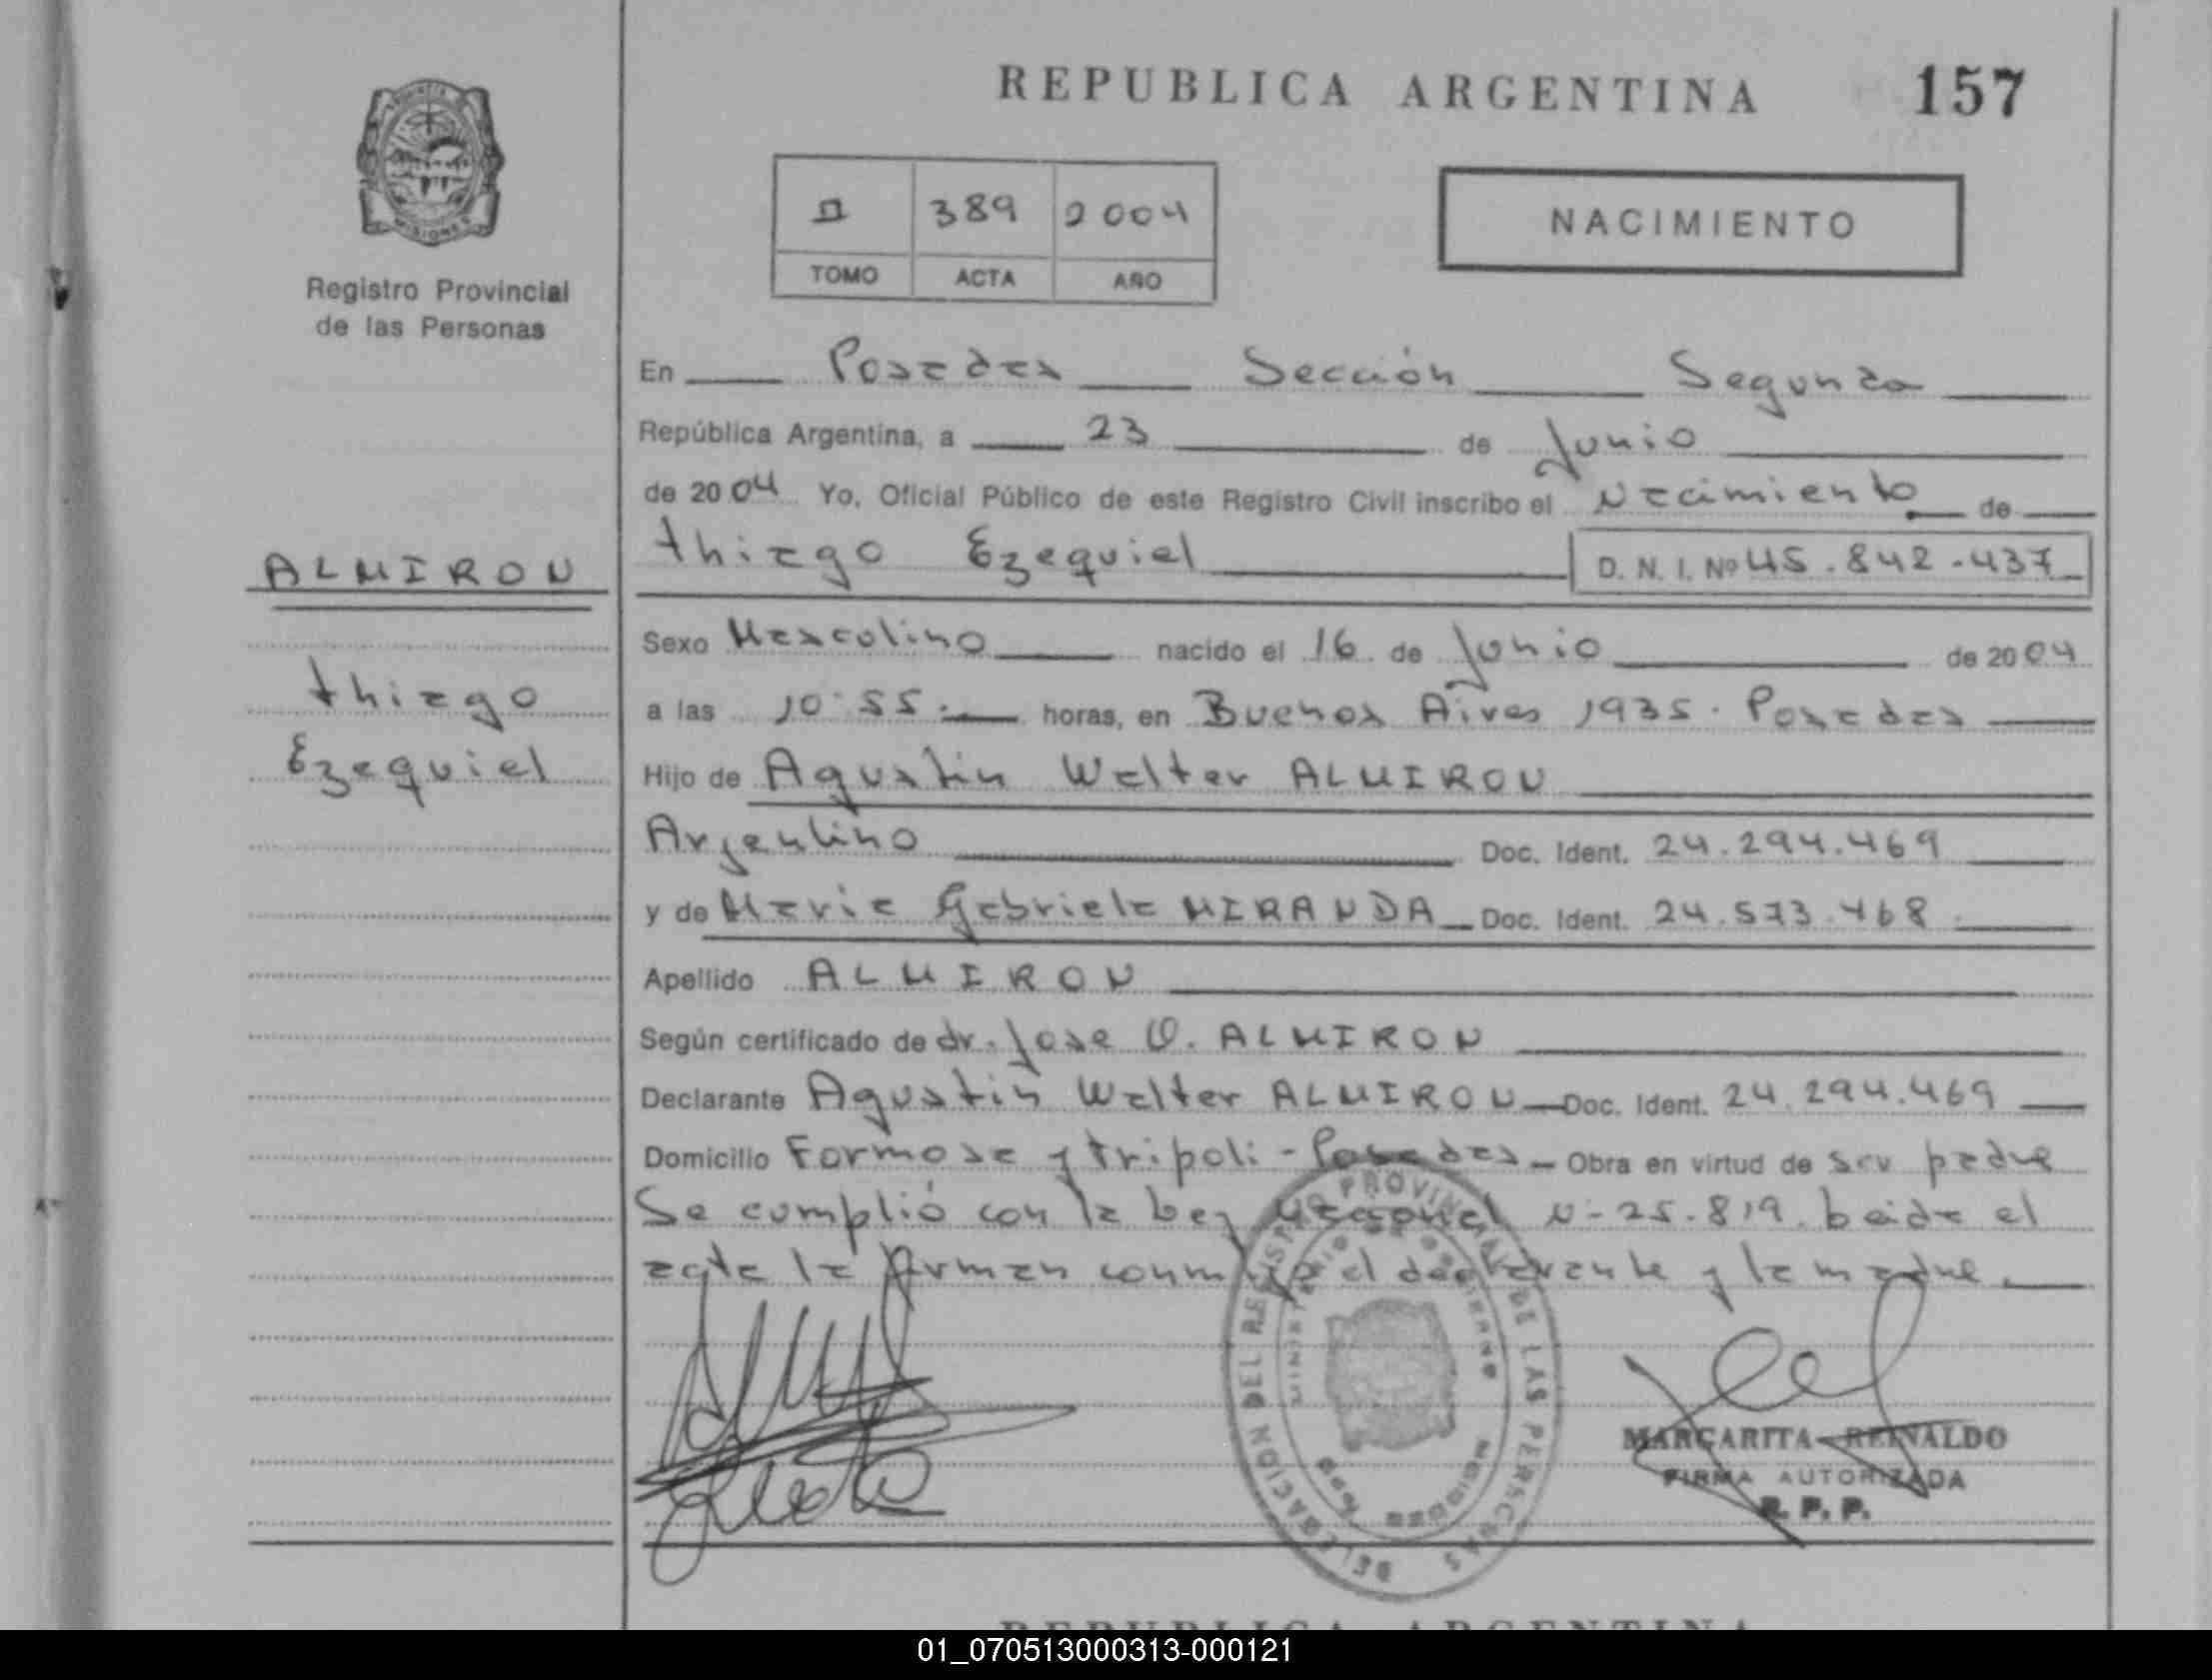 REPUBLICA ARGENTINA 157
MISIONES
Registro Provincial
de las Personas
II 389 2004
TOMO ACTA AÑO
NACIMIENTO
En Posadas Sección Segunda
República Argentina, a 23 de Junio
de 2004 Yo, Oficial Público de este Registro Civil inscribo el Nacimiento de
ALMIRON
thiago Ezequiel D. N. I. Nº 45.842.437
Sexo Masculino nacido el 16 de Junio de 2004
thiago
a las 10:55. horas, en Buenos Aires 1935. Posadas
Ezequiel
Hijo de Agustin Walter ALMIRON
Argentino Doc. Ident. 24.294.469
y de Maria Gabriela MIRANDA Doc. Ident. 24.573.468
Apellido ALMIRON
Según certificado de dr. Jose O. ALMIRON
Declarante Agustin Walter ALMIRON Doc. Ident. 24.294.469
Domicilio Formosa y tripoli - Posadas Obra en virtud de ser padre
Se cumplió con la Ley Nacional N- 25.819. Leida el
acta la firman conmigo el declarante y la madre.
DELEGACION DEL REGISTRO PROVINCIAL DE LAS PERSONAS
MINISTERIO DE GOBIERNO
MISIONES
MARGARITA REINALDO
FIRMA AUTORIZADA
R. P. P.
REPUBLICA ARGENTINA
01_070513000313-000121